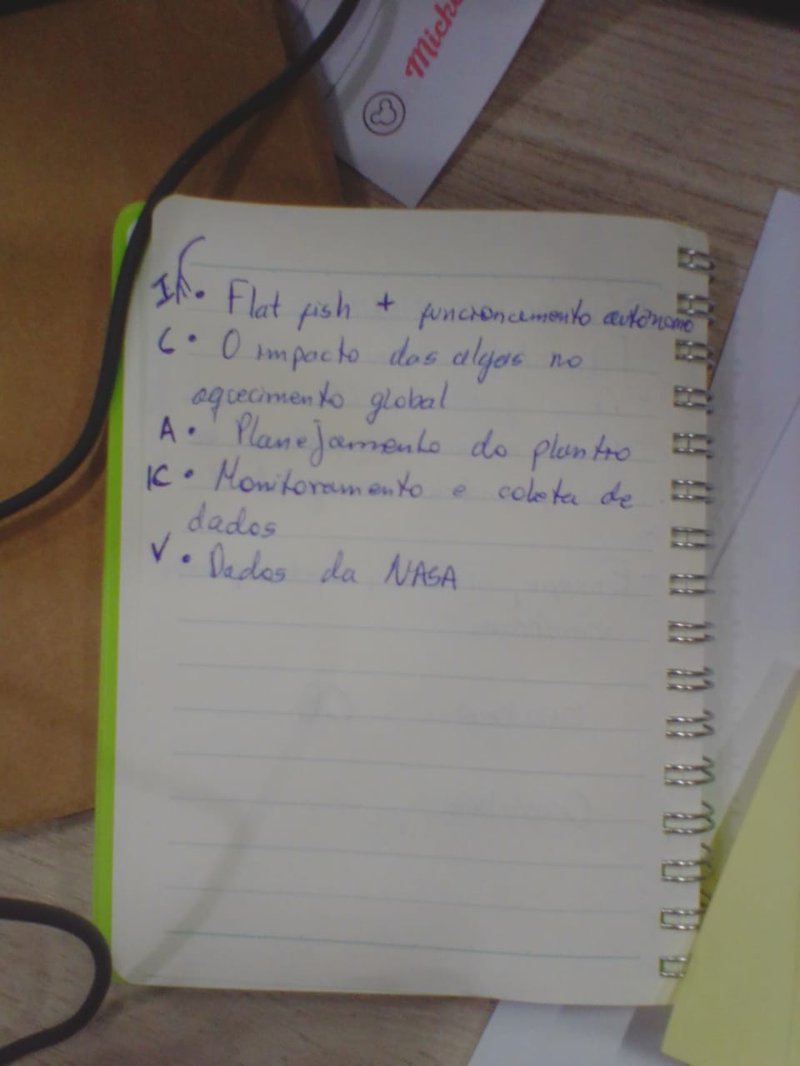 Mich
I. Flat fish + funcionamento autônomo
C • O impacto das algas no
aquecimento global
A • Planejamento do plantio
K • Monitoramento e coleta de
dados
V • Dados da NASA